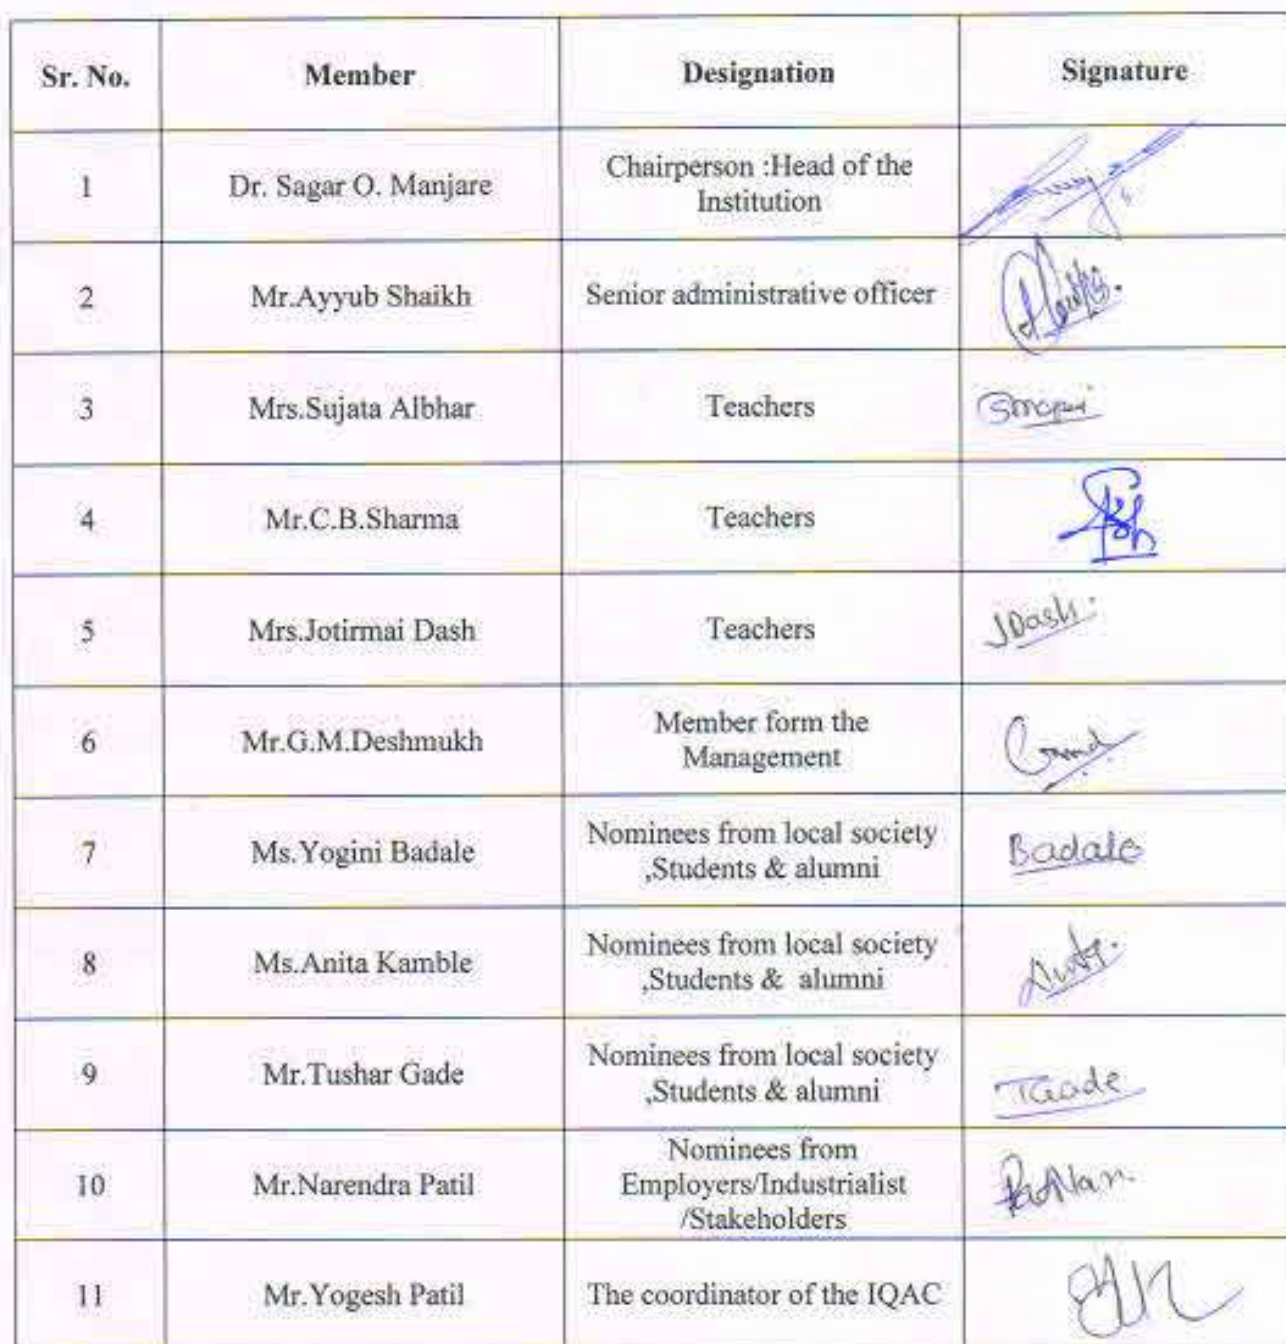 Sr. No. Member Designation Signature
1 Dr. Sagar O. Manjare Chairperson :Head of the
Institution
2 Mr.Ayyub Shaikh Senior administrative officer
3 Mrs.Sujata Albhar Teachers
4 Mr.C.B.Sharma Teachers
5 Mrs.Jotirmai Dash Teachers JDash
6 Mr.G.M.Deshmukh Member form the
Management
7 Ms.Yogini Badale Nominees from local society
,Students & alumni Badale
8 Ms.Anita Kamble Nominees from local society
,Students & alumni
9 Mr.Tushar Gade Nominees from local society
,Students & alumni TGade
10 Mr.Narendra Patil Nominees from
Employers/Industrialist
/Stakeholders
11 Mr.Yogesh Patil The coordinator of the IQAC